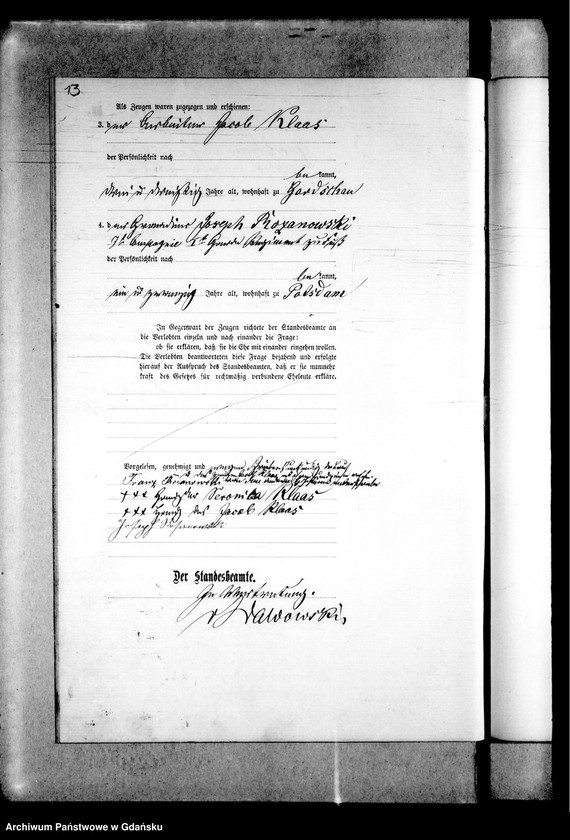 13
Als Zeugen waren zugezogen und erschienen:
3. der Arbeiter Jacob Klaas
der Persönlichkeit nach
be kannt,
drei u dreißig Jahre alt, wohnhaft zu Gardschau
4. der Grenadier Joseph Rozanowski
9t Compagnie 1t Garde Regiment zu Fuß
der Persönlichkeit nach
be kannt,
ein u zwanzig Jahre alt, wohnhaft zu Potsdam
In Gegenwart der Zeugen richtete der Standesbeamte an
die Verlobten einzeln und nach einander die Frage:
ob sie erklären, daß sie die Ehe mit einander eingehen wollen.
Die Verlobten beantworteten diese Frage bejahend und erfolgte
hierauf der Ausspruch des Standesbeamten, daß er sie nunmehr
kraft des Gesetzes für rechtmäßig verbundene Eheleute erkläre.
Vorgelesen, genehmigt und wegen
Franz
+++ Handz. der Veronica Klaas
+++ Handz. des Jacob Klaas
Joseph
Der Standesbeamte.
In Vertretung.
Archiwum Państwowe w Gdańsku